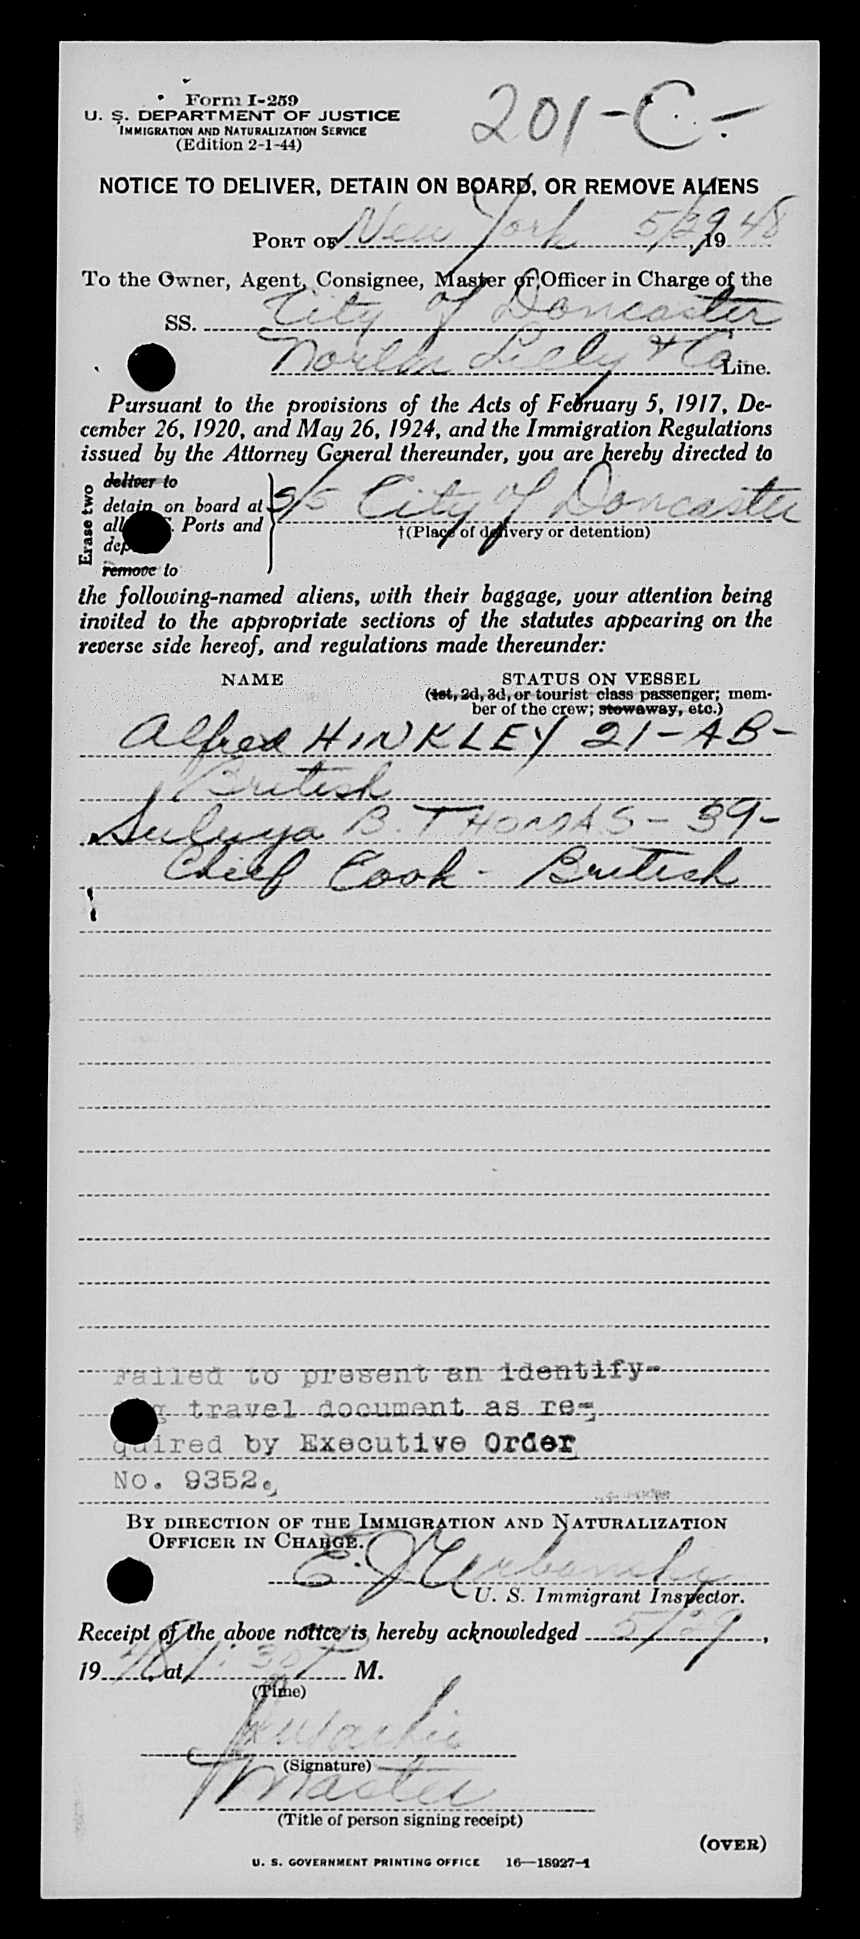 Form I-259
201-C-
U. S. DEPARTMENT OF JUSTICE
IMMIGRATION AND NATURALIZATION SERVICE
(Edition 2-1-44)
NOTICE TO DELIVER, DETAIN ON BOARD, OR REMOVE ALIENS
PORT OF New York 5/29, 1948
To the Owner, Agent, Consignee, Master or Officer in Charge of the
SS. City of Doncaster
& Co Line.
Pursuant to the provisions of the Acts of February 5, 1917, De-
cember 26, 1920, and May 26, 1924, and the Immigration Regulations
issued by the Attorney General thereunder, you are hereby directed to
Erase two
deliver to
detain on board at
all Ports and
remove to
S/S City of Doncaster
†(Place of delivery or detention)
the following-named aliens, with their baggage, your attention being
invited to the appropriate sections of the statutes appearing on the
reverse side hereof, and regulations made thereunder:
NAME STATUS ON VESSEL
(1st, 2d, 3d, or tourist class passenger; mem-
ber of the crew; stowaway, etc.)
Alfred HINKLEY 21-AB-
British
B. THOMAS - 39-
Chief Cook - British
Failed to present an identify-
travel document as re-
quired by Executive Order
No. 9352.
BY DIRECTION OF THE IMMIGRATION AND NATURALIZATION
OFFICER IN CHARGE.
E. J. Urbanski
U. S. Immigrant Inspector.
Receipt of the above notice is hereby acknowledged 5/29,
1948, at 1:30 P M.
(Time)
(Signature)
Master
(Title of person signing receipt)
(OVER)
U. S. GOVERNMENT PRINTING OFFICE 16—18927-1